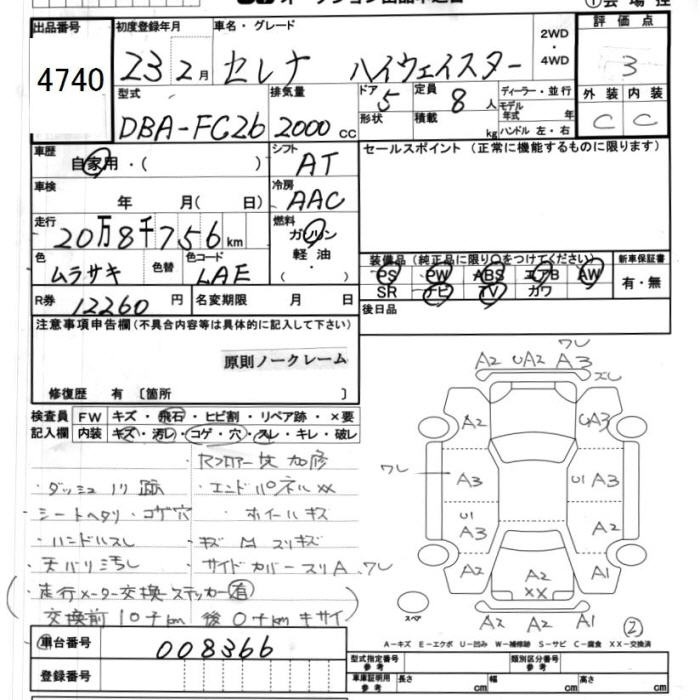 出品番号 初度登録年月 車名・グレード 2WD・4WD 評価点
4740 23 2月 セレナ ハイウェイスター 3
型式 排気量 ドア 5 定員 8人 ディーラー・並行 外装 内装
DBA-FC26 2000cc 形状 積載 kg モデル年式 年 ハンドル 左・右 C C
車歴 自家用・( ) シフト AT セールスポイント(正常に機能するものに限ります)
車検 年 月( 日) 冷房 AAC
走行 20万8千756km 燃料 ガソリン 軽油・( )
色 ムラサキ 色替 色コード LAE 装備品(純正品に限り○をつけてください) 新車保証書
PS PW ABS エアB AW 有・無
R券 12260円 名変期限 月 日 SR ナビ TV カワ
後日品
注意事項申告欄(不具合内容等は具体的に記入して下さい)
原則ノークレーム
修復歴 有〔箇所 〕
検査員 FW キズ・飛石・ヒビ割・リペア跡・×要
記入欄 内装 キズ・汚レ・コゲ・穴・スレ・キレ・破レ
・ダッシュ ノリ跡 ・エンドパネルXX
・シートヘタリ・コゲ穴 ・ホイールキズ
・ハンドルスレ
・天バリ汚し ・サイドカバースリA、ワレ
走行メーター交換ステッカー有
交換前10千km 後0千km キサイ
車台番号 008366
登録番号
A2 UA2 A3 ワレ
ズレ
A2 UA3
ワレ A3 U1 A3
U1 A3 A2
A2 A2 XX A1
スペア A2 A2 A1 ②
A-キズ E-エクボ U-凹み W-補修跡 S-サビ C-腐食 XX-交換済
型式指定番号 参考 類別区分番号 参考
車庫証明用 参考 長さ cm 幅 cm 高さ cm